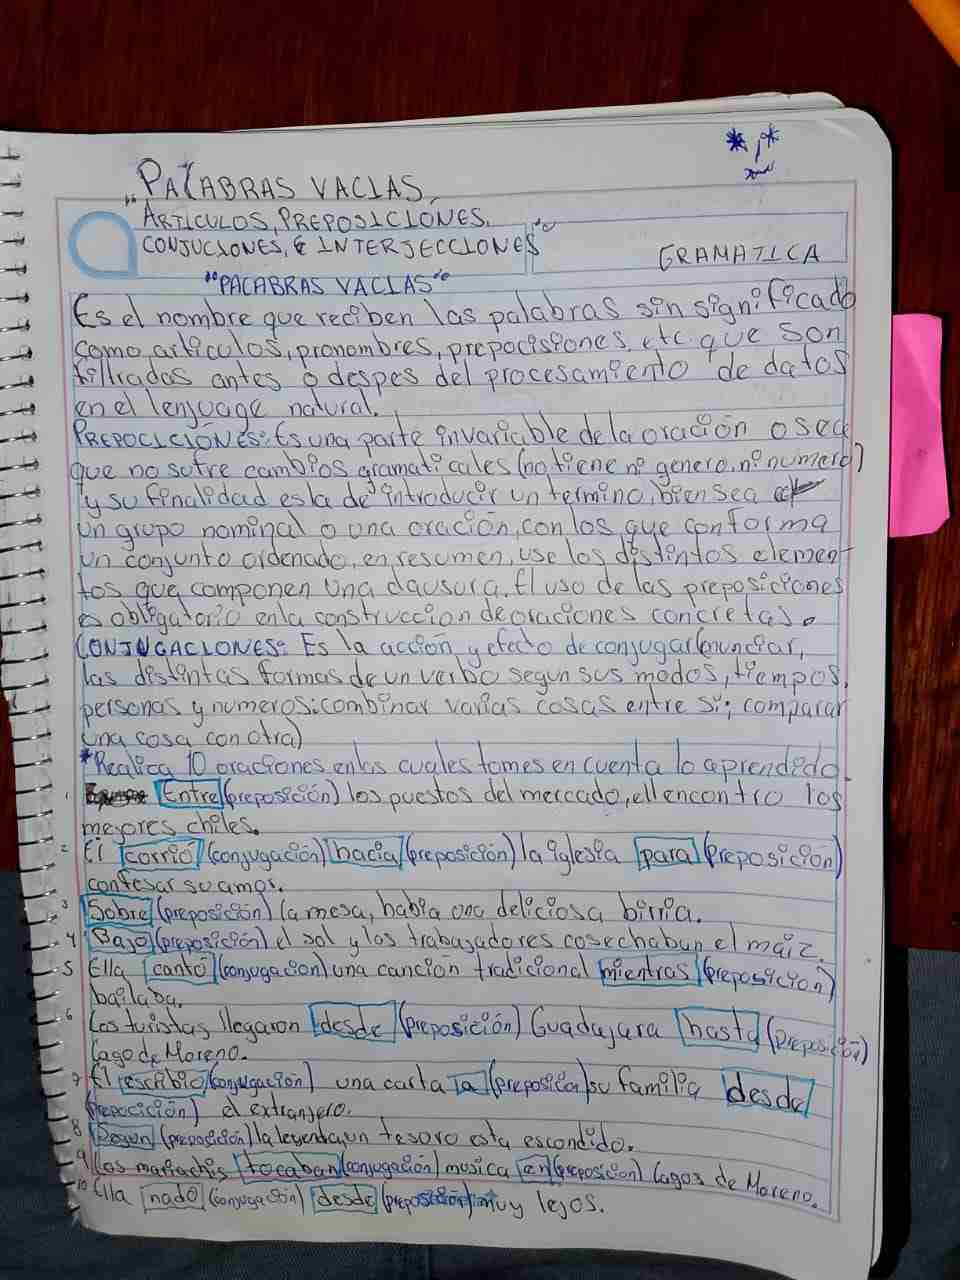 "PALABRAS VACIAS,
ARTICULOS, PREPOSICIONES,
CONJUCIONES, & INTERJECCIONES
GRAMATICA
"PALABRAS VACIAS"
Es el nombre que reciben las palabras sin significado
como articulos, pronombres, prepocisiones, etc. que son
filtradas antes o despes del procesamiento de datos
en el lenjuage natural.
PREPOCICIÓNES: Es una parte invariable de la oración o sea
que no sufre cambios gramaticales (no tiene ni genero, ni numero)
y su finalidad es la de introducir un termino, bien sea
un grupo nominal o una oración, con los que conforma
un conjunto ordenado, en resumen, use los distintos elemen-
tos que componen una clausura. El uso de las preposiciones
es obligatorio en la construccion de oraciones concretas.
CONJUGACIONES: Es la acción y efecto de conjugar (enunciar,
las distintas formas de un verbo segun sus modos, tiempos,
personas y numeros: combinar varias cosas entre si; comparar
una cosa con otra)
*Realica 10 oraciones en las cuales tomes en cuenta lo aprendido.
1 Entre (preposición) los puestos del mercado, ell encontro los
mejores chiles.
2 El corrió (conjugación) hacia (preposición) la iglesia para (preposición)
confesar su amor.
3 Sobre (preposición) la mesa, había una deliciosa birria.
4 Bajo (preposición) el sol y los trabajadores cosechaban el maiz.
5 Ella cantó (conjugación) una canción tradicional mientras (preposicion)
bailaba.
6 Los turistas llegaron desde (preposición) Guadajara hasta (preposición)
Lago de Moreno.
7 El escribio (conjugacion) una carta a (preposicia) su familia desde
(preposición) el extranjero.
8 Segun (preposición) la leyenda un tesoro esta escondido.
9 Los mariachis tocaban (conjugación) musica en (preposición) Lagos de Moreno.
10 Ella nado (conjugación) desde (preposición) muy lejos.